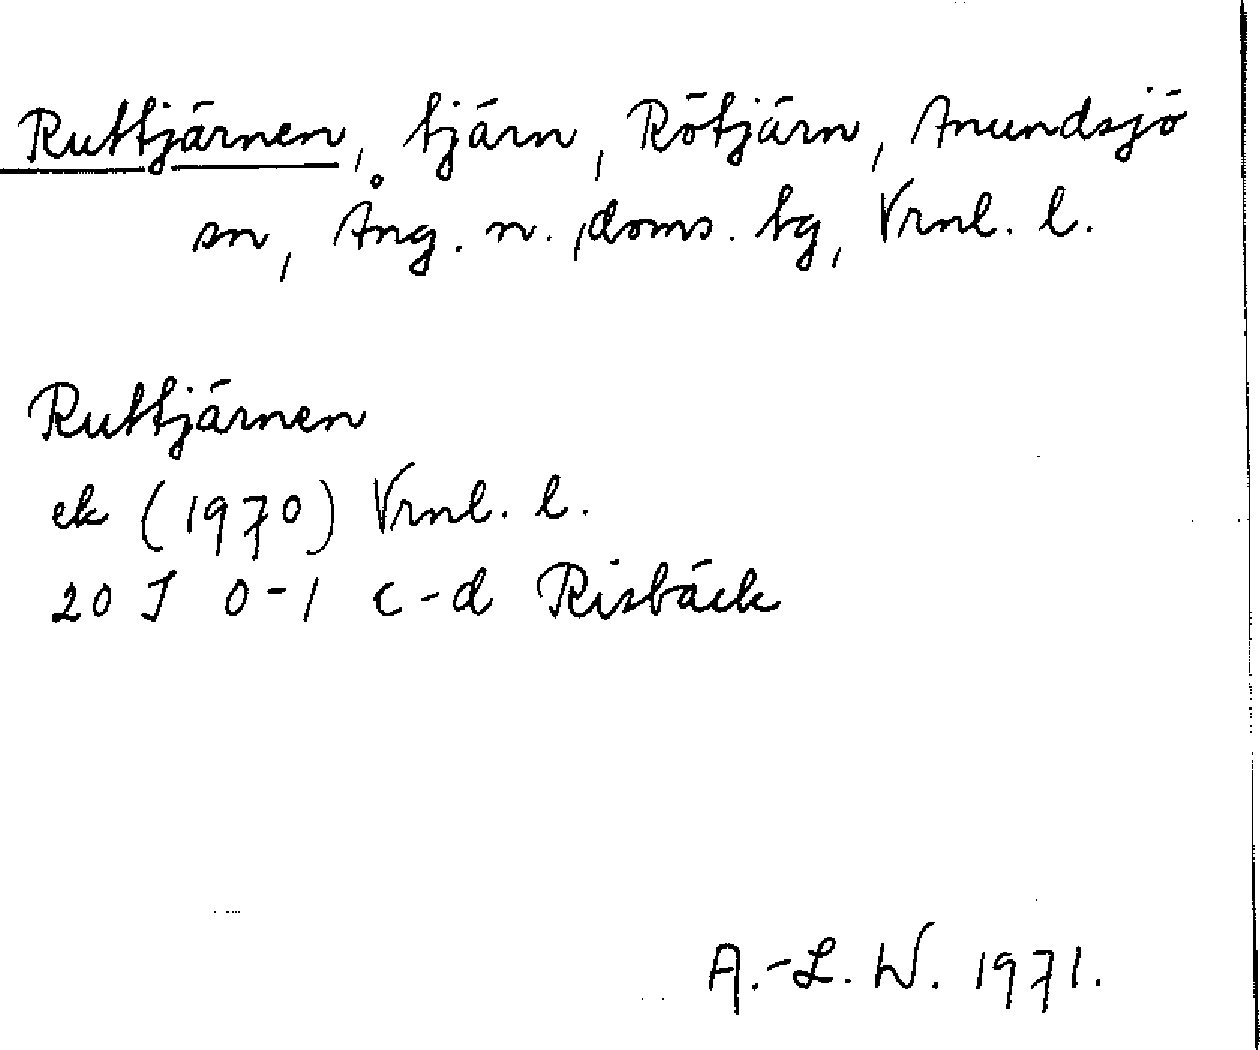 Ruttjärnen, tjärn, Rötjärn, Anundsjö
sn, Ång. n. doms. tg, Vrnl. l.
Ruttjärnen
ek (1970) Vrnl. l.
20 J 0-1 c-d Risbäck
A.-L. W. 1971.